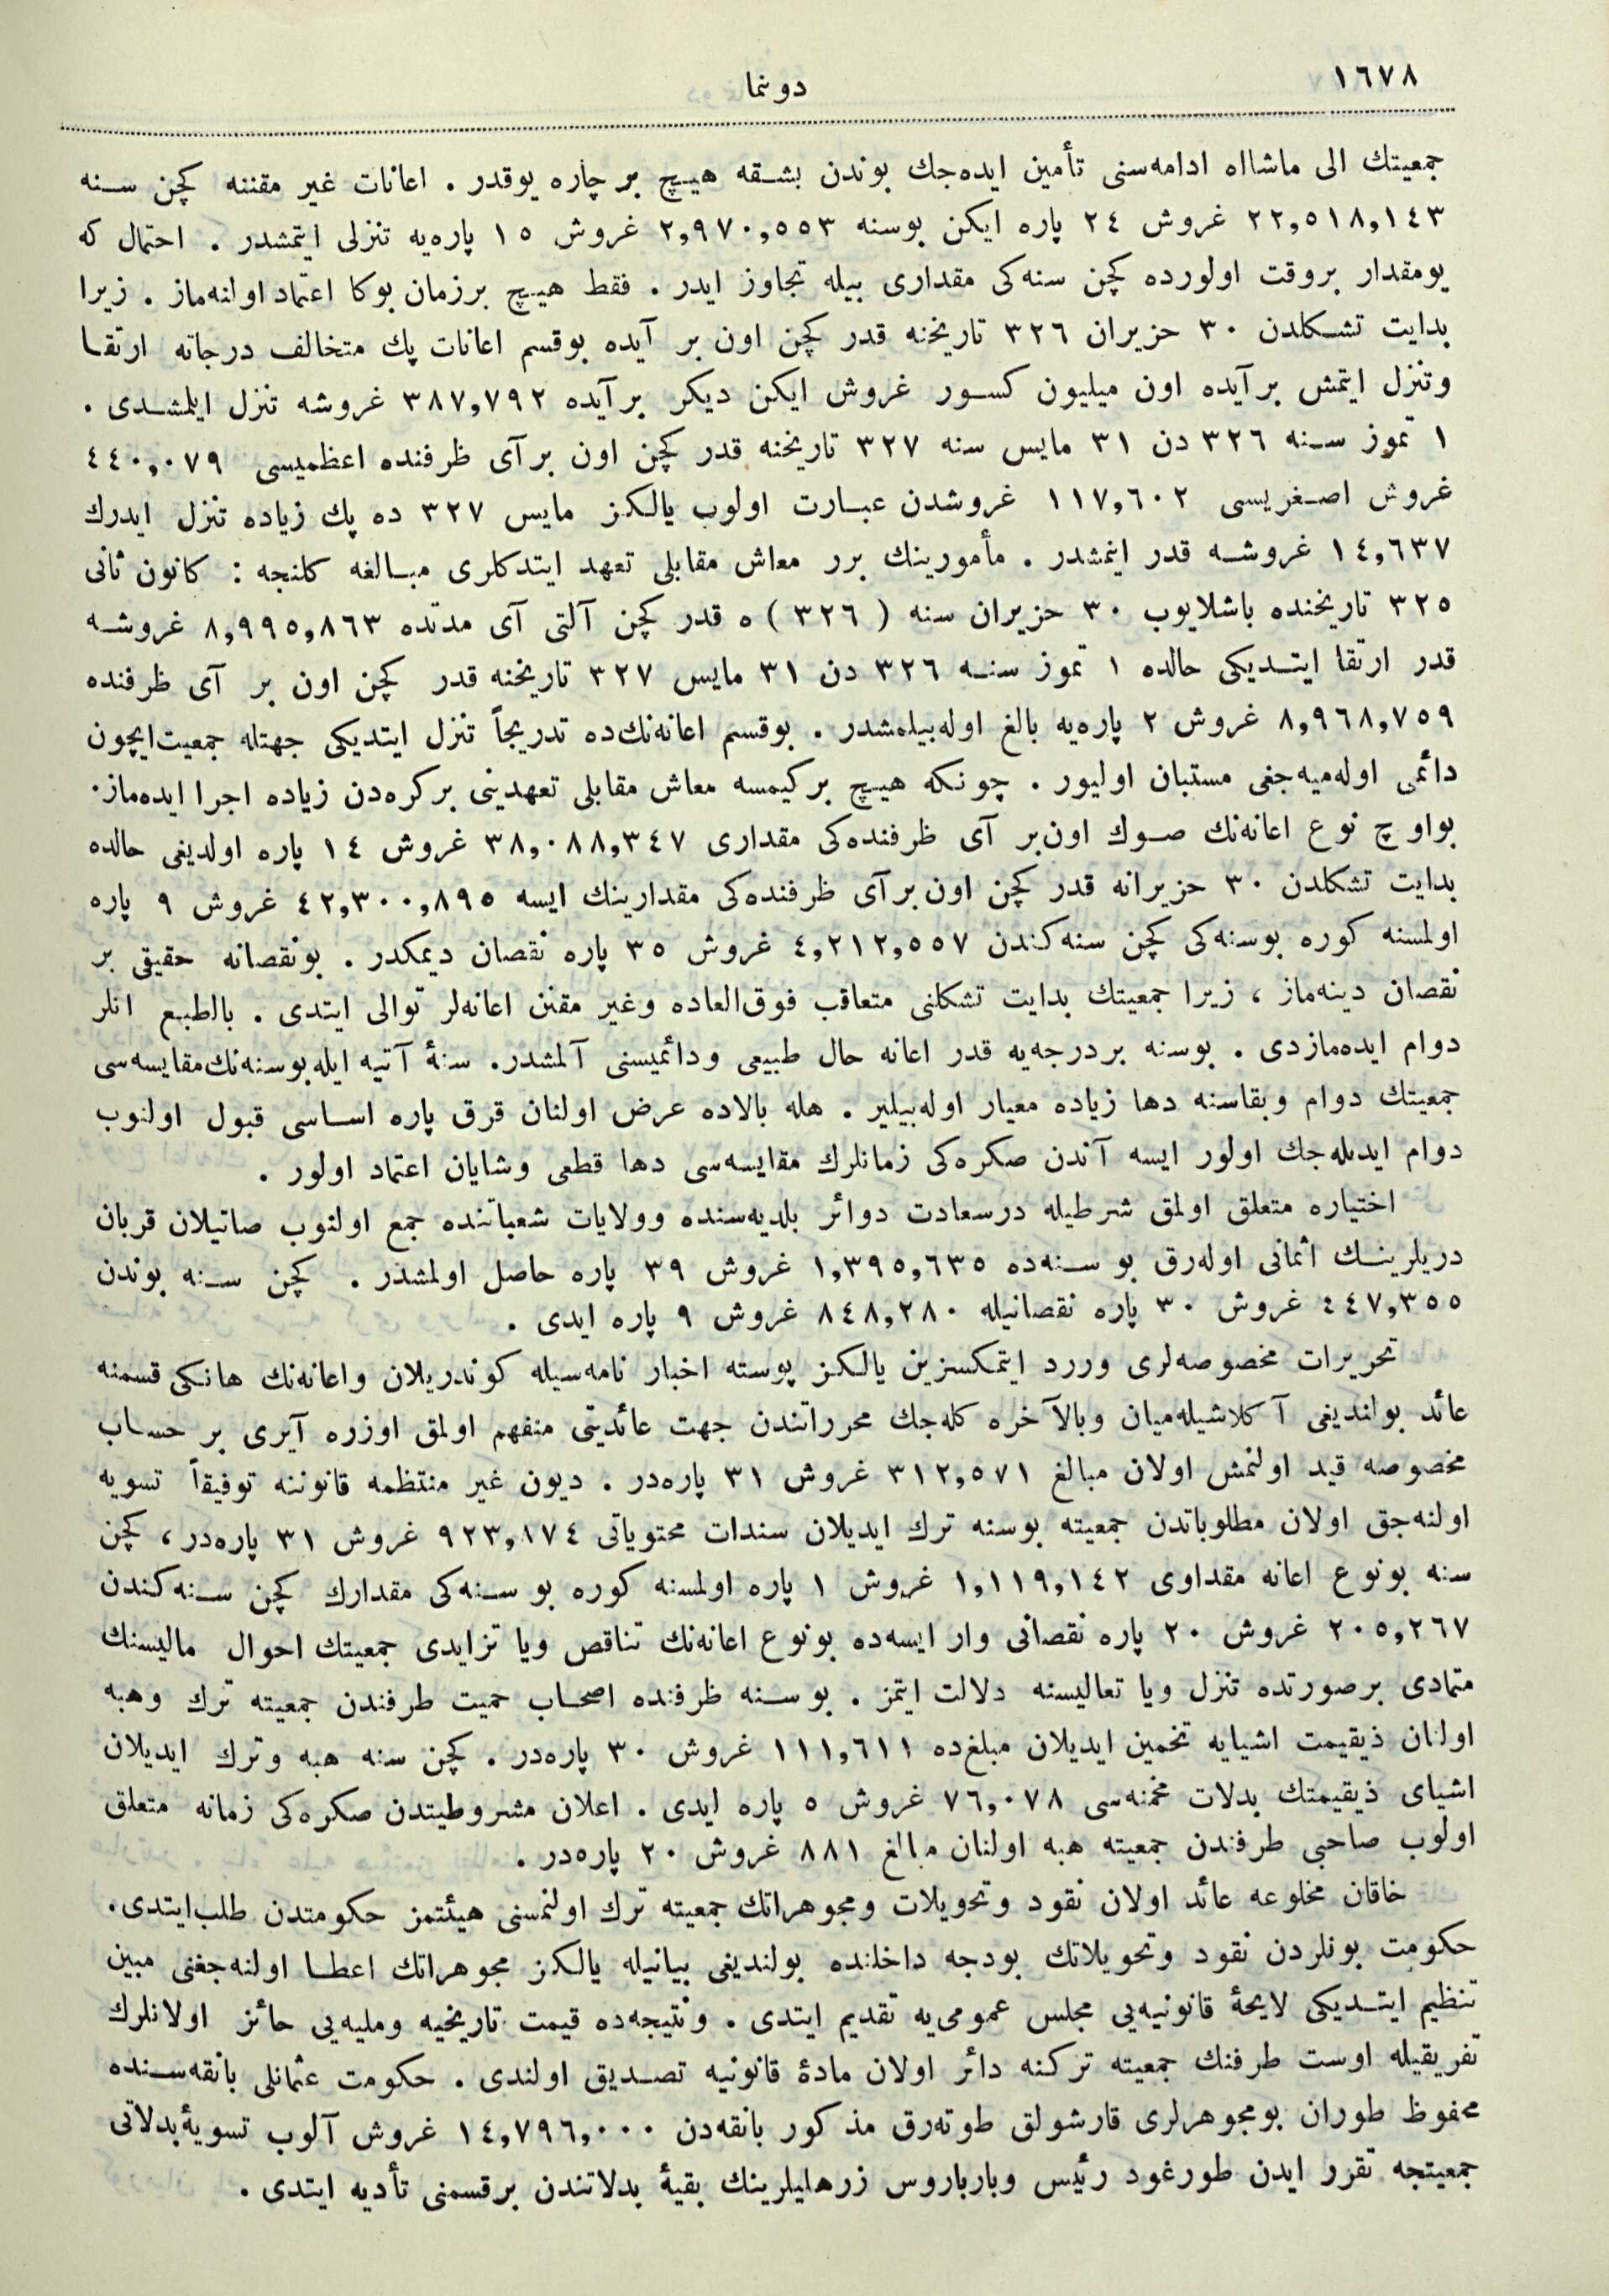 ١٦٧٨
دونما
جمعيتك الى ماشااه ادامه‌سنى تأمين ايده‌جك بوندن بشقه هيچ بر چاره يوقدر . اعانات غير مقننه كچن سنه
٢٢,٥١٨,١٤٣ غروش ٢٤ پاره ايكن بوسنه ٢,٩٧٠,٥٥٣ غروش ١٥ پاره‌يه تنزلى ايتمشدر . احتمال كه
بومقدار بروقت اولورده كچن سنه‌كى مقدارى بيله تجاوز ايدر . فقط هيچ برزمان بوكا اعتماد اولنه‌ماز . زيرا
بدايت تشكلدن ٣٠ حزيران ٣٢٦ تاريخنه قدر كچن اون بر آيده بوقسم اعانات پك متخالف درجاته ارتقا
وتنزل ايتمش برآيده اون ميليون كسور غروش ايكن ديكر برآيده ٣٨٧,٧٩٢ غروشه تنزل ايلمشدى .
١ تموز سنه ٣٢٦ دن ٣١ مايس سنه ٣٢٧ تاريخنه قدر كچن اون برآى ظرفنده اعظميسى ٤٤٠,٠٧٩
غروش اصغريسى ١١٧,٦٠٢ غروشدن عبارت اولوب يالكز مايس ٣٢٧ ده پك زياده تنزل ايدرك
١٤,٦٣٧ غروشه قدر اينمشدر . مأمورينك برر معاش مقابلى تعهد ايتدكلرى مبالغه كلنجه : كانون ثانى
٣٢٥ تاريخنده باشلايوب ٣٠ حزيران سنه ( ٣٢٦ ) ه قدر كچن آلتى آى مدتده ٨,٩٩٥,٨٦٣ غروشه
قدر ارتقا ايتديكى حالده ١ تموز سنه ٣٢٦ دن ٣١ مايس ٣٢٧ تاريخنه قدر كچن اون بر آى ظرفنده
٨,٩٦٨,٧٥٩ غروش ٢ پاره‌يه بالغ اوله‌بيلمشدر . بوقسم اعانه‌نك‌ده تدريجاً تنزل ايتديكى جهتله جمعيت‌ايچون
دائمى اوله‌ميه‌جغى مستبان اوليور . چونكه هيچ بركيمسه معاش مقابلى تعهدينى بركره‌دن زياده اجرا ايده‌ماز.
بواوچ نوع اعانه‌نك صوك اون‌بر آى ظرفنده‌كى مقدارى ٣٨,٠٨٨,٣٤٧ غروش ١٤ پاره اولديغى حالده
بدايت تشكلدن ٣٠ حزيرانه قدر كچن اون‌برآى ظرفنده‌كى مقدارينك ايسه ٤٢,٣٠٠,٨٩٥ غروش ٩ پاره
اولمسنه كوره بوسنه‌كى كچن سنه‌كندن ٤,٢١٢,٥٥٧ غروش ٣٥ پاره نقصان ديمكدر . بونقصانه حقيقى بر
نقصان دينه‌ماز ، زيرا جمعيتك بدايت تشكلنى متعاقب فوق‌العاده وغير مقنن اعانه‌لر توالى ايتدى . بالطبع انلر
دوام ايده‌مازدى . بوسنه بردرجه‌يه قدر اعانه حال طبيعى ودائميسنى آلمشدر. سنهٔ آتيه ايله‌بوسنه‌نك‌مقايسه‌سى
جمعيتك دوام وبقاسنه دها زياده معيار اوله‌بيلير . هله بالاده عرض اولنان قرق پاره اساسى قبول اولنوب
دوام ايدىله‌جك اولور ايسه آندن صكره‌كى زمانلرك مقايسه‌سى دها قطعى وشايان اعتماد اولور .
اختياره متعلق اولمق شرطيله درسعادت دوائر بلديه‌سنده وولايات شعباتنده جمع اولنوب صاتيلان قربان
دريلرينك اثمانى اوله‌رق بو سنه‌ده ١,٣٩٥,٦٣٥ غروش ٣٩ پاره حاصل اولمشدر . كچن سنه بوندن
٤٤٧,٣٥٥ غروش ٣٠ پاره نقصانيله ٨٤٨,٢٨٠ غروش ٩ پاره ايدى .
تحريرات مخصوصه‌لرى وررد ايتمكسزين يالكز پوسته اخبار نامه‌سيله كوندريلان واعانه‌نك هانكى قسمنه
عائد بولنديغى آكلاشيله‌ميان وبالآخره كله‌جك محرراتندن جهت عائديتى منفهم اولمق اوزره آيرى بر حساب
مخصوصه قيد اولنمش اولان مبالغ ٣١٢,٥٧١ غروش ٣١ پاره‌در . ديون غير منتظمه قانوننه توفيقاً تسويه
اولنه‌جق اولان مطلوباتدن جمعيته بوسنه ترك ايديلان سندات محتوياتى ٩٢٣,٨٧٤ غروش ٣١ پاره‌در ، كچن
سنه بونوع اعانه مقداوى ١,١١٩,١٤٢ غروش ١ پاره اولمسنه كوره بو سنه‌كى مقدارك كچن سنه‌كندن
٢٠٥,٢٦٧ غروش ٢٠ پاره نقصانى وار ايسه‌ده بونوع اعانه‌نك تناقص ويا تزايدى جمعيتك احوال ماليسنك
متمادى برصورتده تنزل ويا تعاليسنه دلالت ايتمز . بو سنه ظرفنده اصحاب حميت طرفندن جمعيته ترك وهبه
اولنان ذيقيمت اشيايه تخمين ايديلان مبلغ‌ده ١١١,٦١١ غروش ٣٠ پاره‌در . كچن سنه هبه وترك ايديلان
اشياى ذيقيمتك بدلات مخمنه‌سى ٧٦,٠٧٨ غروش ٥ پاره ايدى . اعلان مشروطيتدن صكره‌كى زمانه متعلق
اولوب صاحبى طرفندن جمعيته هبه اولنان مبالغ ٨٨١ غروش ٢٠ پاره‌در .
خاقان مخلوعه عائد اولان نقود وتحويلات ومجوهراتك جمعيته ترك اولنمسنى هيئتمز حكومتدن طلب‌ايتدى.
حكومت بونلردن نقود وتحويلاتك بودجه داخلنده بولنديغى بيانيله يالكز مجوهراتك اعطا اولنه‌جغنى مبين
تنظيم ايتديكى لايحهٔ قانونيه‌يى مجلس عمومى‌يه تقديم ايتدى . ونتيجه‌ده قيمت تاريخيه ومليه‌يى حائز اولانلرك
تفريقيله اوست طرفنك جمعيته تركنه دائر اولان مادهٔ قانونيه تصديق اولندى . حكومت عثمانلى بانقه‌سنده
محفوظ طوران بومجوهرلرى قارشولق طوته‌رق مذكور بانقه‌دن ١٤,٧٩٦,٠٠٠ غروش آلوب تسويهٔ‌بدلاتى
جمعيتجه تقرر ايدن طورغود رئيس وبارباروس زرهليلرينك بقيهٔ بدلاتندن برقسمنى تأديه ايتدى .